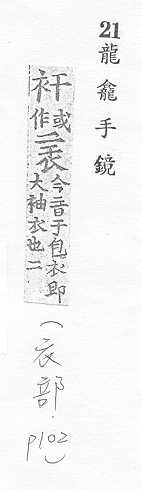 21 龍龕手鏡
衦 或作 今音于包衣即大袖衣也二
(衣部．p102)